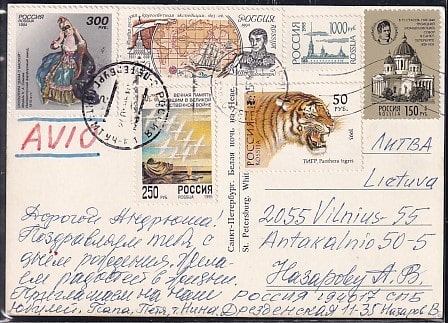 300
РУБ.
РОССИЯ
РОССИЯ
1994
1000
РУБ.
РОССИЯ
150
РОССИЯ
50
РУБ.
РОССИЯ
1993
ТИГР. Panthera tigris
ВЕЧНАЯ ПАМЯТЬ
250
РУБ.
РОССИЯ
1995
AVIO
Санкт-Петербург. Белая ночь на Неве.
St. Petersburg.
Дорогой Андрюша!
Поздравляем тебя, с
днём рождения, жела-
ем радостей в жизни.
Приглашаем на наш
юбилей. Папа, Петя, т. Нина.
ЛИТВА
Lietuva
2055 Vilnius-55
Antakalnio 50-5
Назарову А.В.
РОССИЯ 194017 СПБ
Дрезденская 11-35 Назаров В.